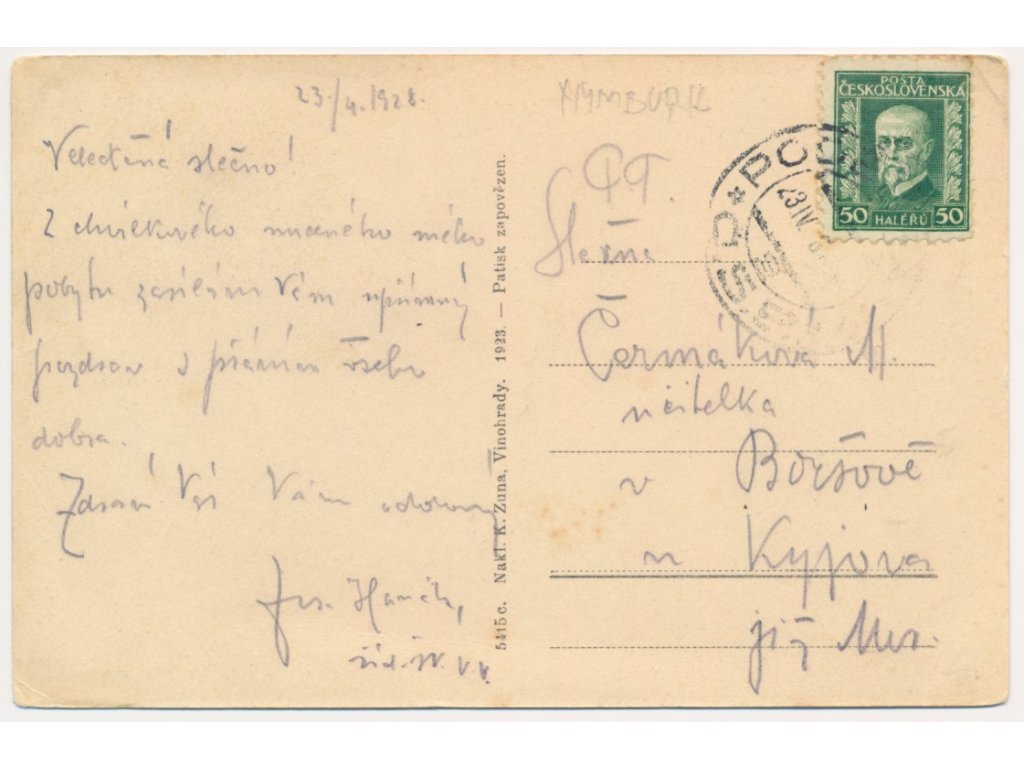 23./4. 1928.
Velectěná slečno!
Z chvilkového nuceného mého
pobytu zasílám Vám upřímný
pozdrav s přáním všeho
dobra.
Zdraví Vás Vám oddaný
Jos. Hanák,
5415c. Nakl. K. Zuna, Vinohrady. 1923. — Patisk zapovězen.
NYMBURK
POŠTA
ČESKOSLOVENSKÁ
50 HALÉŘŮ 50
23 IV
Slečna
Čermáková M.
učitelka
v Boršově
u Kyjova
již. Mor.